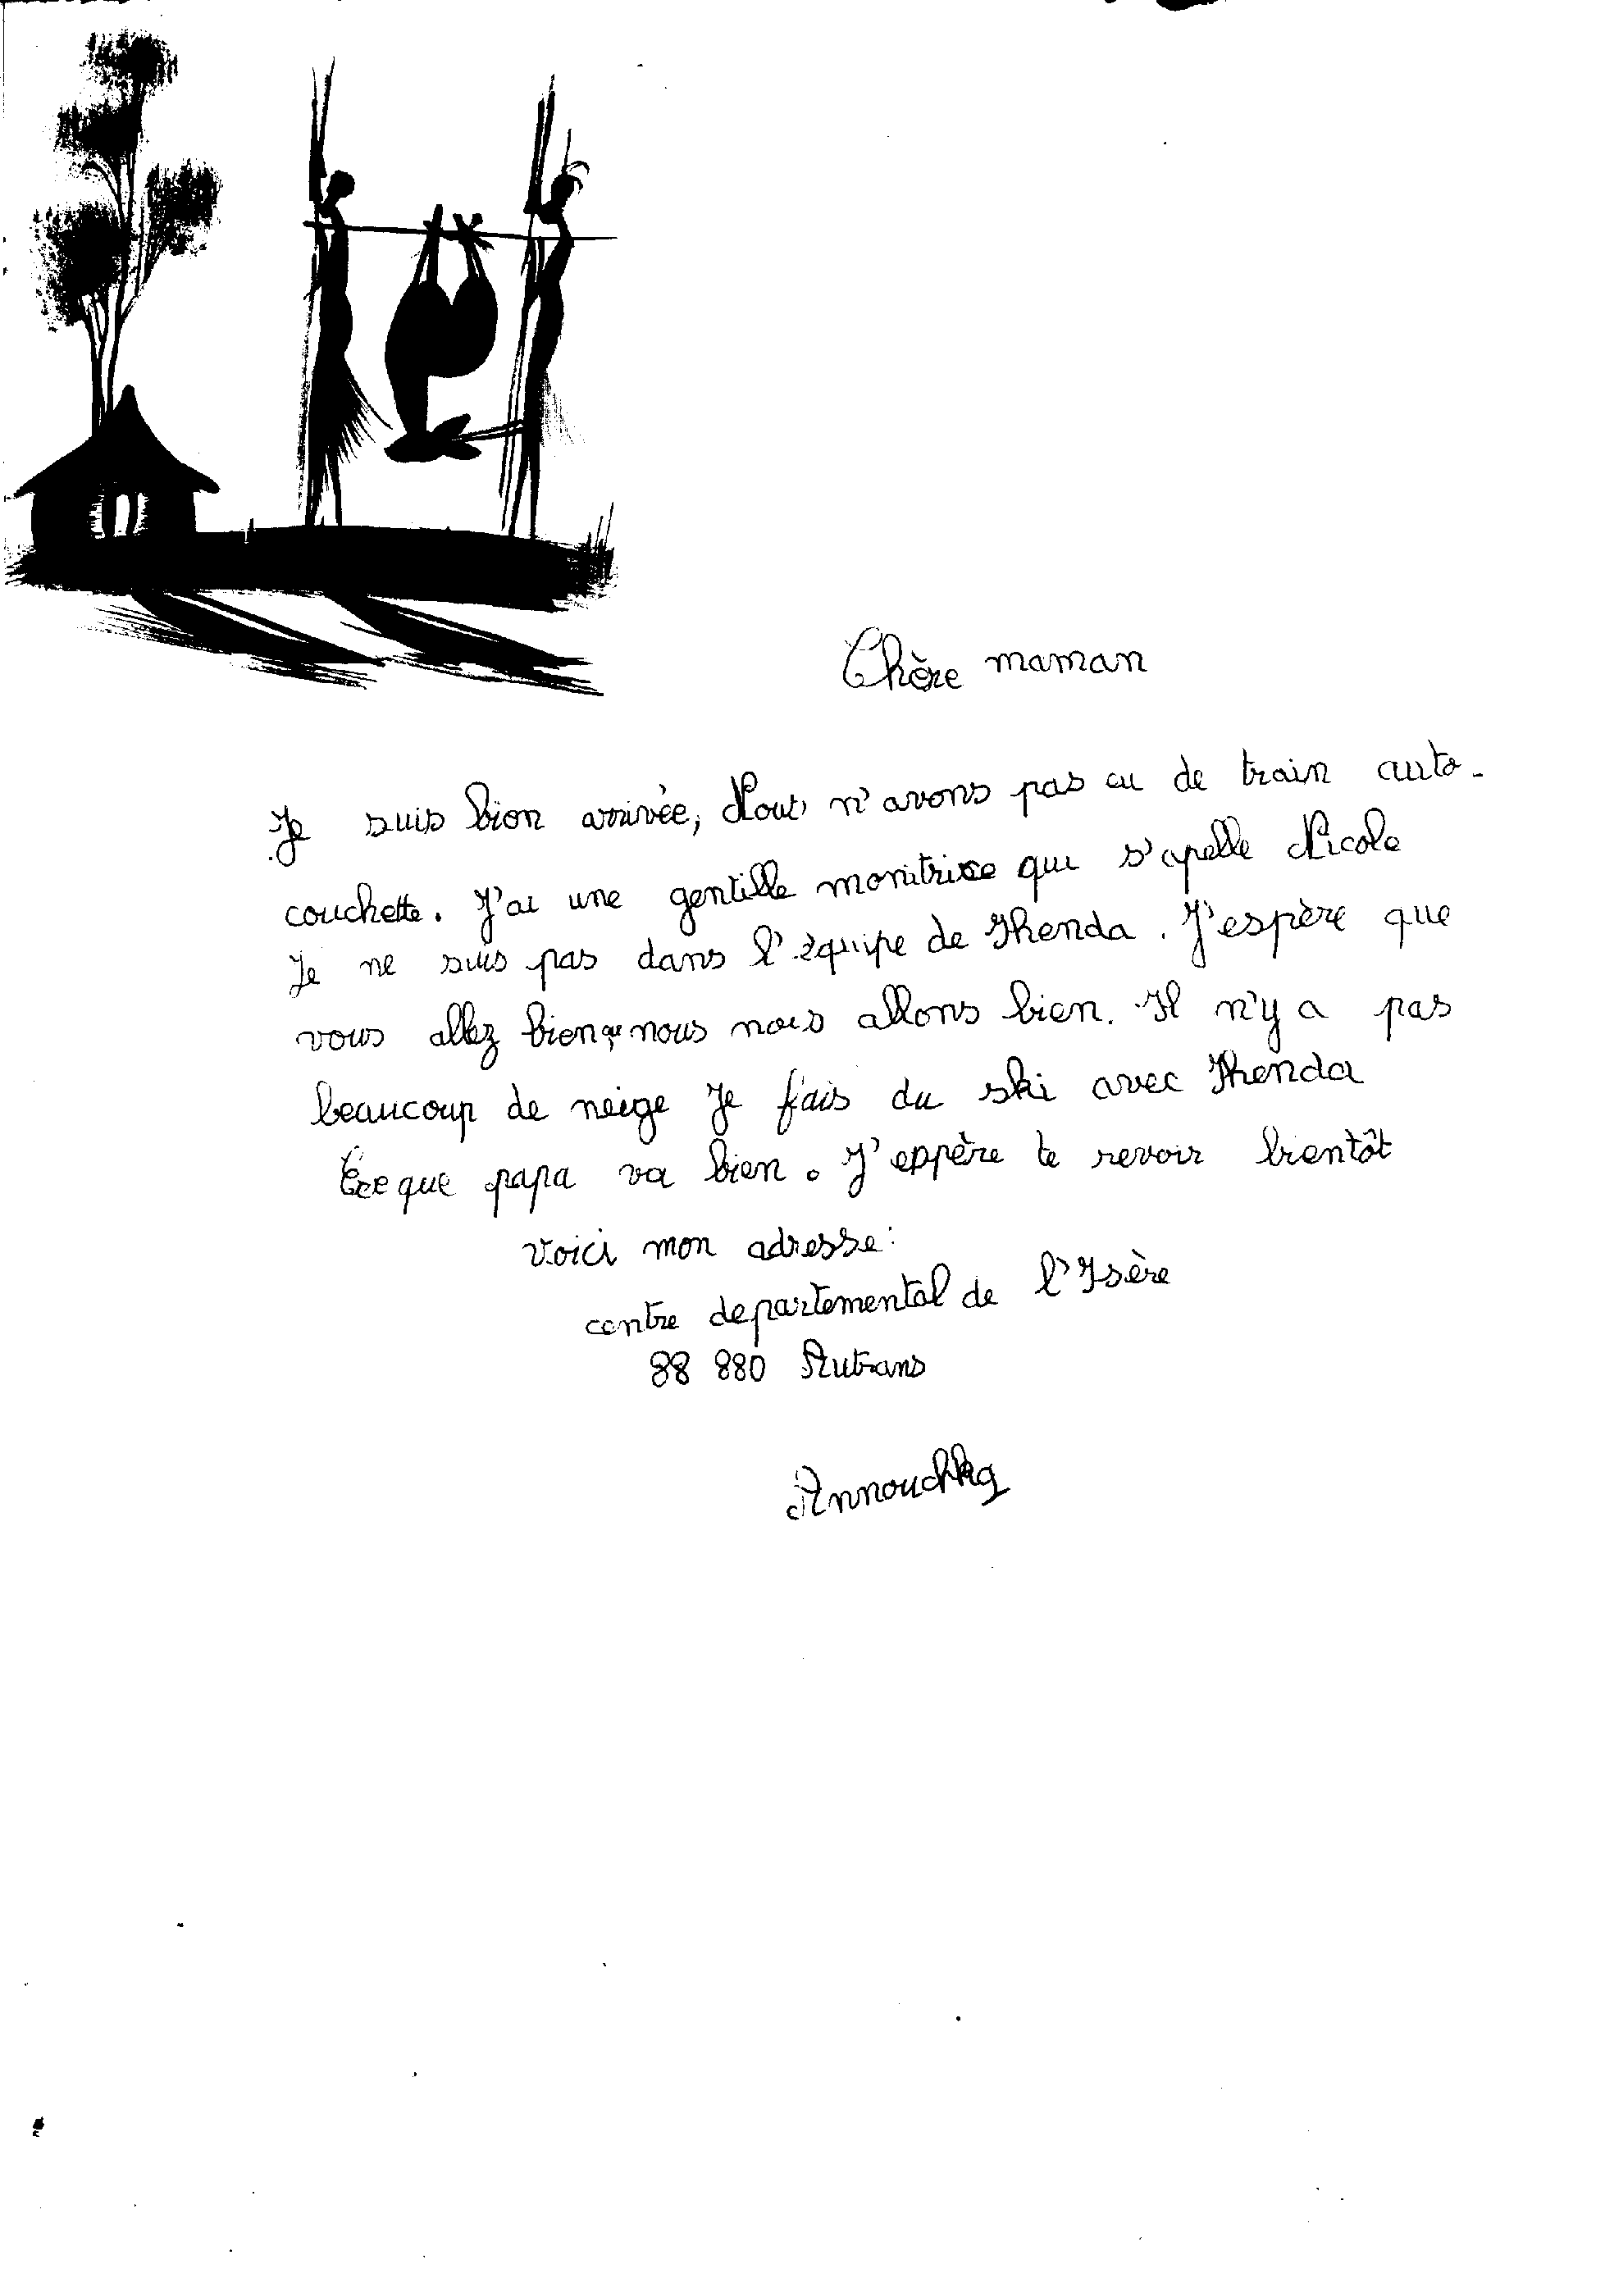 Chère maman
Je suis bien arrivée, Nous n'avons pas eu de train auto-
couchette. J'ai une gentille monitrice qui s'apelle Nicole
Je ne suis pas dans l'équipe de . J'espère que
vous allez bien nous nous allons bien. Il n'y a pas
beaucoup de neige Je fais du ski avec
Ece que papa va bien. J'eppère te revoir bientôt
Voici mon adresse:
centre departemental de l'Isère
38 880 Autrans
Annouchka